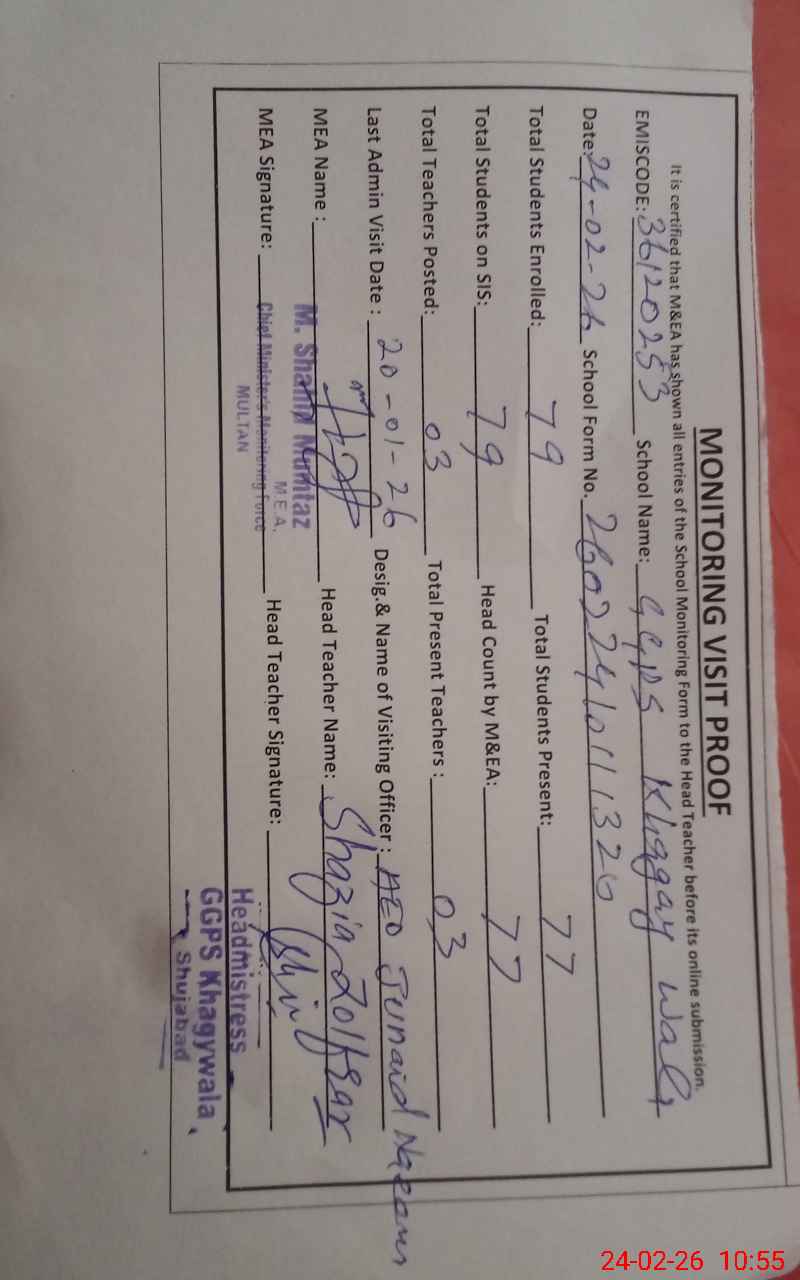 MONITORING VISIT PROOF
It is certified that M&EA has shown all entries of the School Monitoring Form to the Head Teacher before its online submission.
EMISCODE: 36120253 School Name: GGPS Khaggay wala
Date: 24-02-26 School Form No. 26022410111320
Total Students Enrolled: 79 Total Students Present: 77
Total Students on SIS: 79 Head Count by M&EA: 77
Total Teachers Posted: 03 Total Present Teachers : 03
Last Admin Visit Date : 20-01-26 Desig.& Name of Visiting Officer : AEO Junaid Naeem
MEA Name : M. Shahid Mumtaz Head Teacher Name: Shazia Zolfkar
M.E.A.
MEA Signature: Chief Minister's Monitoring Force Head Teacher Signature:
MULTAN
Headmistress
GGPS Khagywala,
Shujabad
24-02-26 10:55